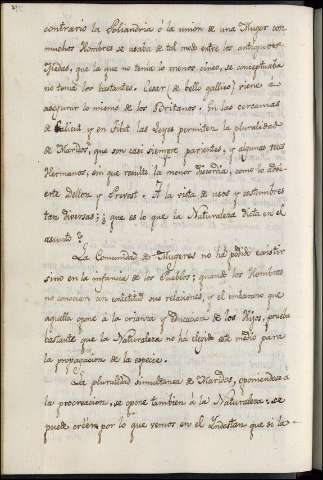 contrario la Poliandria ó la union de una Muger con
muchos Hombres se usaba de tal modo entre los antiguos
Medas, que la que no tenia lo menos cinco, se conceptuaba
no tenia los bastantes. Cesar (de bello gallico) viene á
asegurar lo mismo de los Britanos. En las cercanias
de Calicut y en Tibet las Leyes permiten la pluralidad
de Maridos, que son casi siempre parientes, y algunas veces
Hermanos, sin que resulte la menor discordia, como lo advi-
erte Dellon y Prevost. A la vista de usos y costumbres
tan diversas; ¿que es lo que la Naturaleza dicta en el
asunto?
La Comunidad de Mugeres no ha podido existir
sino en la infancia de los Pueblos; quando los Hombres
no conocian con exactitud sus relaciones, y el embarazo que
aquella opone á la crianza y educacion de los Hijos, prueba
bastante que la Naturaleza no ha elegido este medio para
la propagacion de la especie.
La pluralidad simultanea de Maridos, oponiendose á
la procreacion, se opone tambien á la Naturaleza: se
puede creer por lo que vemos en el Indostan que si la